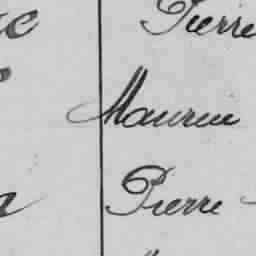 Pierre
Maurice
Pierre